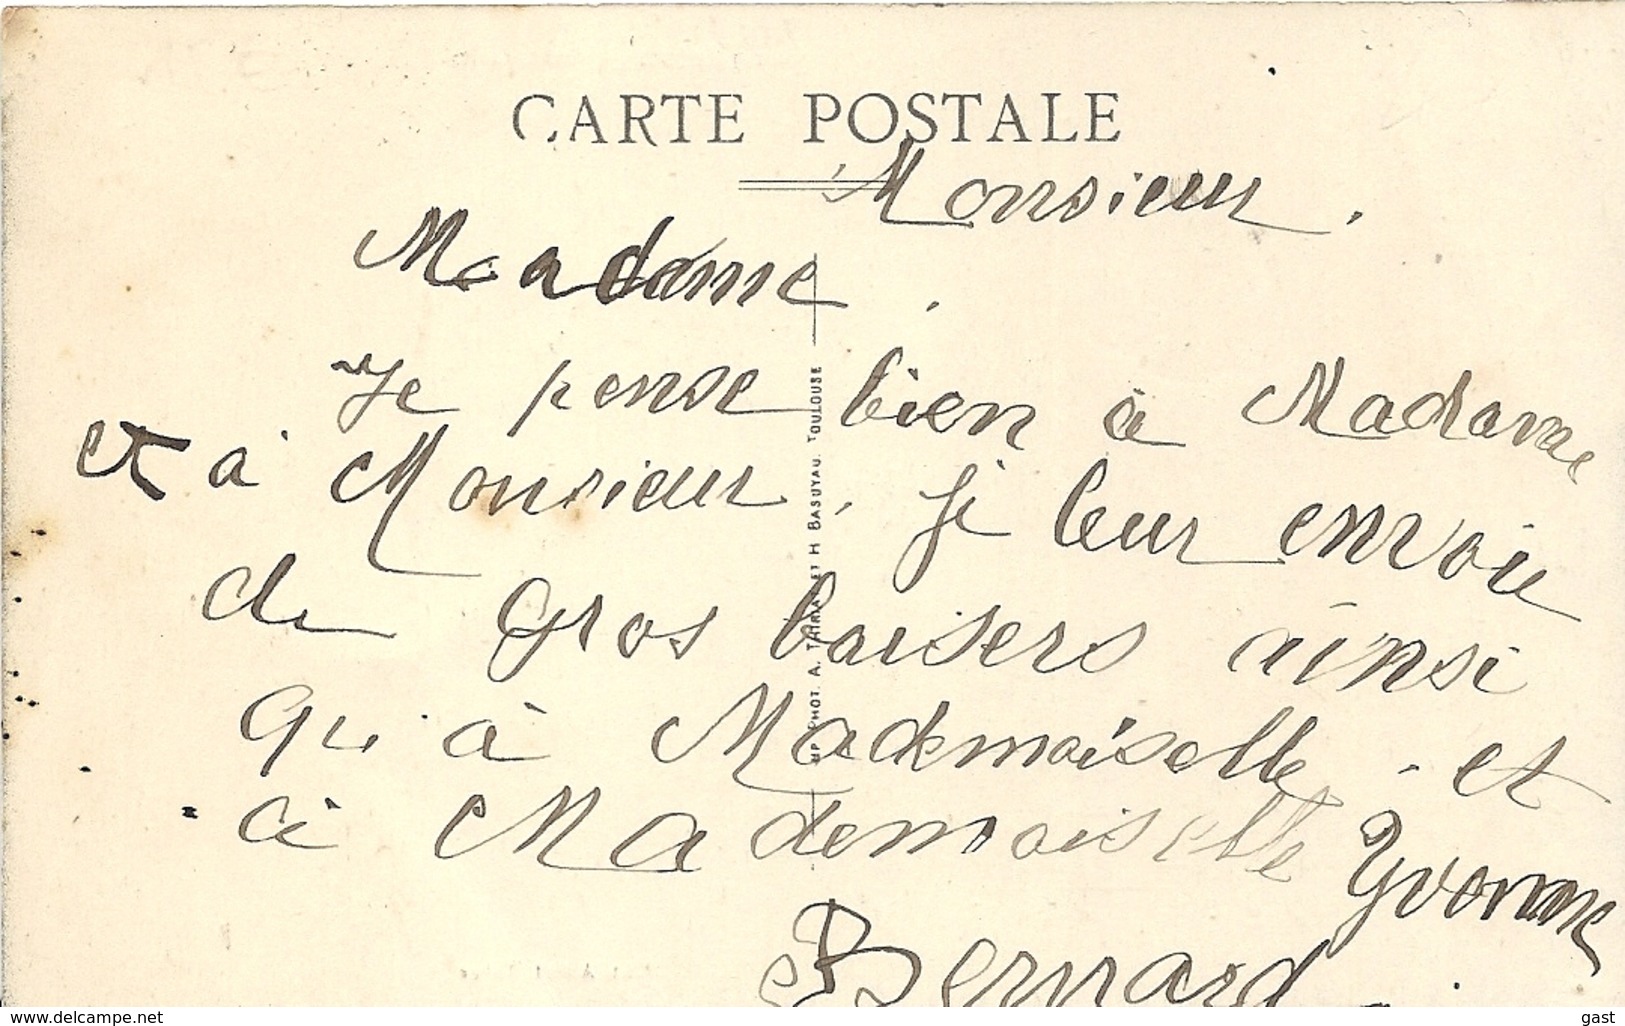 CARTE POSTALE
Monsieur.
Madame.
Je pense bien à Madame
et à Monsieur. je leur envoie
de gros baisers ainsi
qu'à Mademoiselle et
à Mademoiselle Yvonne
Bernard
PHOT. A. THIRIAT ET H BASUYAU. TOULOUSE
www.delcampe.net
gast